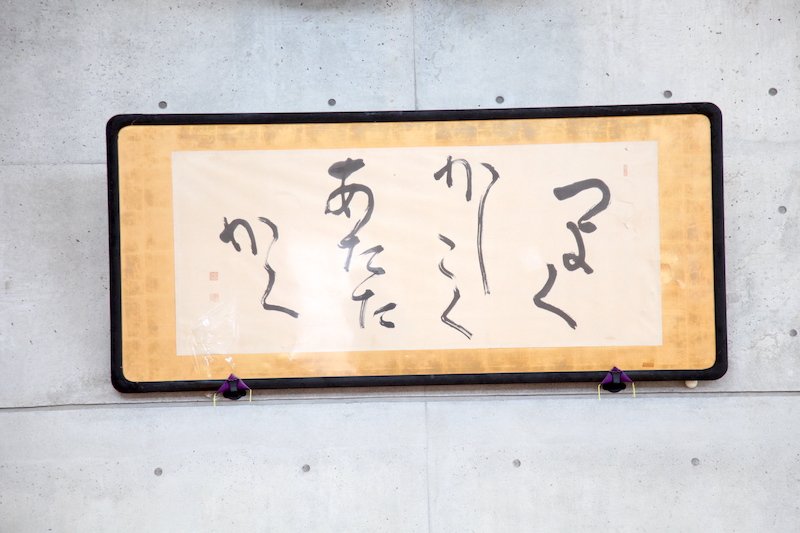 つよく
かしこく
あたた
かく